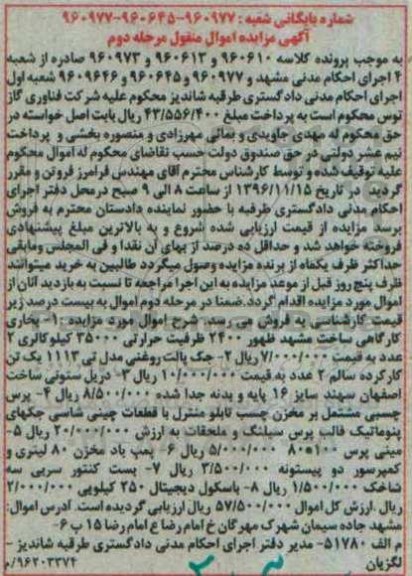 شماره بایگانی شعبه : ۹۶۰۹۷۷-۹۶۰۶۴۵-۹۶۰۹۷۷
آگهی مزایده اموال منقول مرحله دوم
به موجب پرونده کلاسه ۹۶۰۶۱۰ و ۹۶۰۶۱۳ و ۹۶۰۹۷۳ صادره از شعبه
۴ اجرای احکام مدنی مشهد و ۹۶۰۹۷۷ و ۹۶۰۶۴۵ و ۹۶۰۹۶۴۶ شعبه اول
اجرای احکام مدنی دادگستری طرقبه شاندیز محکوم علیه شرکت فناوری گاز
توس محکوم است به پرداخت مبلغ ۴۳/۵۵۶/۴۰۰ ریال بابت اصل خواسته در
حق محکوم له مهدی جاویدی و بمانی مهرزادی و منصوره بخشی و پرداخت
نیم عشر دولتی در حق صندوق دولت حسب تقاضای محکوم له اموال محکوم
علیه توقیف شده و توسط کارشناس محترم آقای مهندس فرامرز فروتن و مقرر
گردید در تاریخ ۱۳۹۶/۱۱/۱۵ از ساعت ۸ الی ۹ صبح درمحل دفتر اجرای
احکام مدنی دادگستری طرقبه با حضور نماینده دادستان محترم به فروش
برسد مزایده از قیمت ارزیابی شده شروع و به بالاترین مبلغ پیشنهادی
فروخته خواهد شد و حداقل ده درصد از بهای آن نقدا و فی المجلس ومابقی
حداکثر ظرف یکماه از برنده مزایده وصول میگردد طالبین به خرید میتوانند
ظرف پنج روز قبل از موعد مزایده به این اجرا مراجعه تا نسبت به بازدید آنان از
اموال مورد مزایده اقدام گردد.ضمنا در مرحله دوم اموال به بیست درصد زیر
قیمت کارشناسی به فروش می رسد شرح اموال مورد مزایده :۱- بخاری
کارگاهی ساخت مشهد ظهور ۲۴۰۰ ظرفیت حرارتی ۳۵۰۰۰ کیلوکالری ۲
عدد به قیمت ۷/۰۰۰/۰۰۰ ریال ۲- جک پالت روغنی مدل تی ۱۱۱۳ یک تن
کارکرده سالم ۲ عدد به قیمت ۱۰/۰۰۰/۰۰۰ ریال ۳- دریل ستونی ساخت
اصفهان سهند سایز ۱۶ پایه و بدنه جدا شده ۸/۵۰۰/۰۰۰ ریال ۴- پرس
چسبی مشتمل بر مخزن چسب تابلو منترل با قطعات چینی شاسی جکهای
پنوماتیک قالب پرس سیلنگ و ملحقات به ارزش ۲۰/۰۰۰/۰۰۰ ریال ۵-
مینی پرس ۱۰۰*۸۰ ۵/۰۰۰/۰۰۰ ریال ۶- پمپ باد مخزن ۸۰ لیتری و
کمپرسور دو پیستونه ۳/۵۰۰/۰۰۰ ریال ۷- بست کنتور سربی سه
شاخک ۱/۵۰۰/۰۰۰ ریال ۸- باسکول دیجیتال ۲۵۰ کیلویی ۲/۰۰۰/۰۰۰
ریال .ارزش کل اموال ۵۷/۵۰۰/۰۰۰ ریال ارزیابی گردیده است. آدرس اموال:
مشهد جاده سیمان شهرک مهرگان خ امام رضا ع امام رضا ۱۵ پ ۶-
م الف ۵۱۷۸۰- مدیر دفتر اجرای احکام مدنی دادگستری طرقبه شاندیز -
لگزیان ۹۶۲۰۳۳۷۴/م